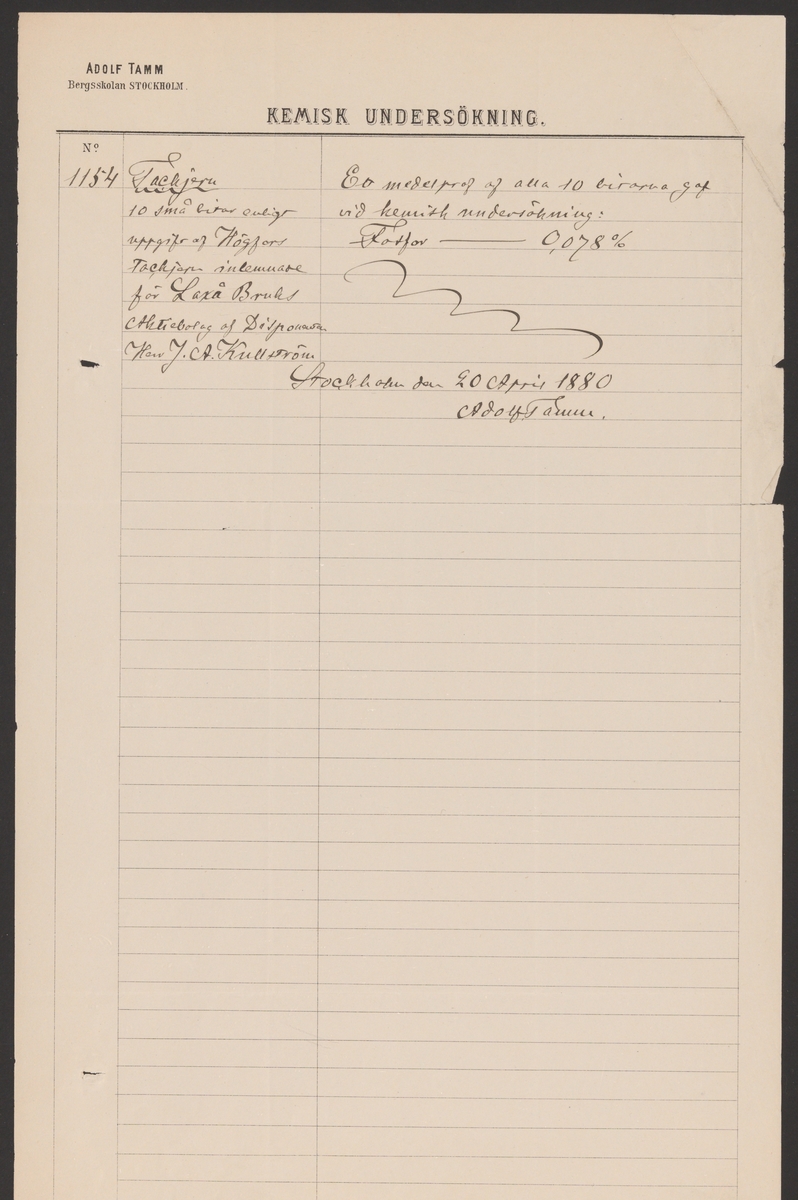 ADOLF TAMM
Bergsskolan STOCKHOLM.
KEMISK UNDERSÖKNING.
Nº
1154 Tackjern
10 små bitar enligt
uppgift af Högfors
tackjern inlemnade
för Laxå Bruks
Aktiebolag af Disponenten
Herr J. A. Kullström
Ett medelprof af alla 10 bitarna gaf
vid kemisk undersökning:
Fosfor — 0,078 %
Stockholm den 20 April 1880
Adolf Tamm.